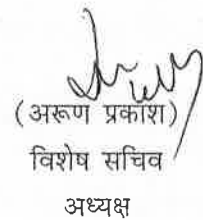 (अरूण प्रकाश)
विशेष सचिव
अध्यक्ष